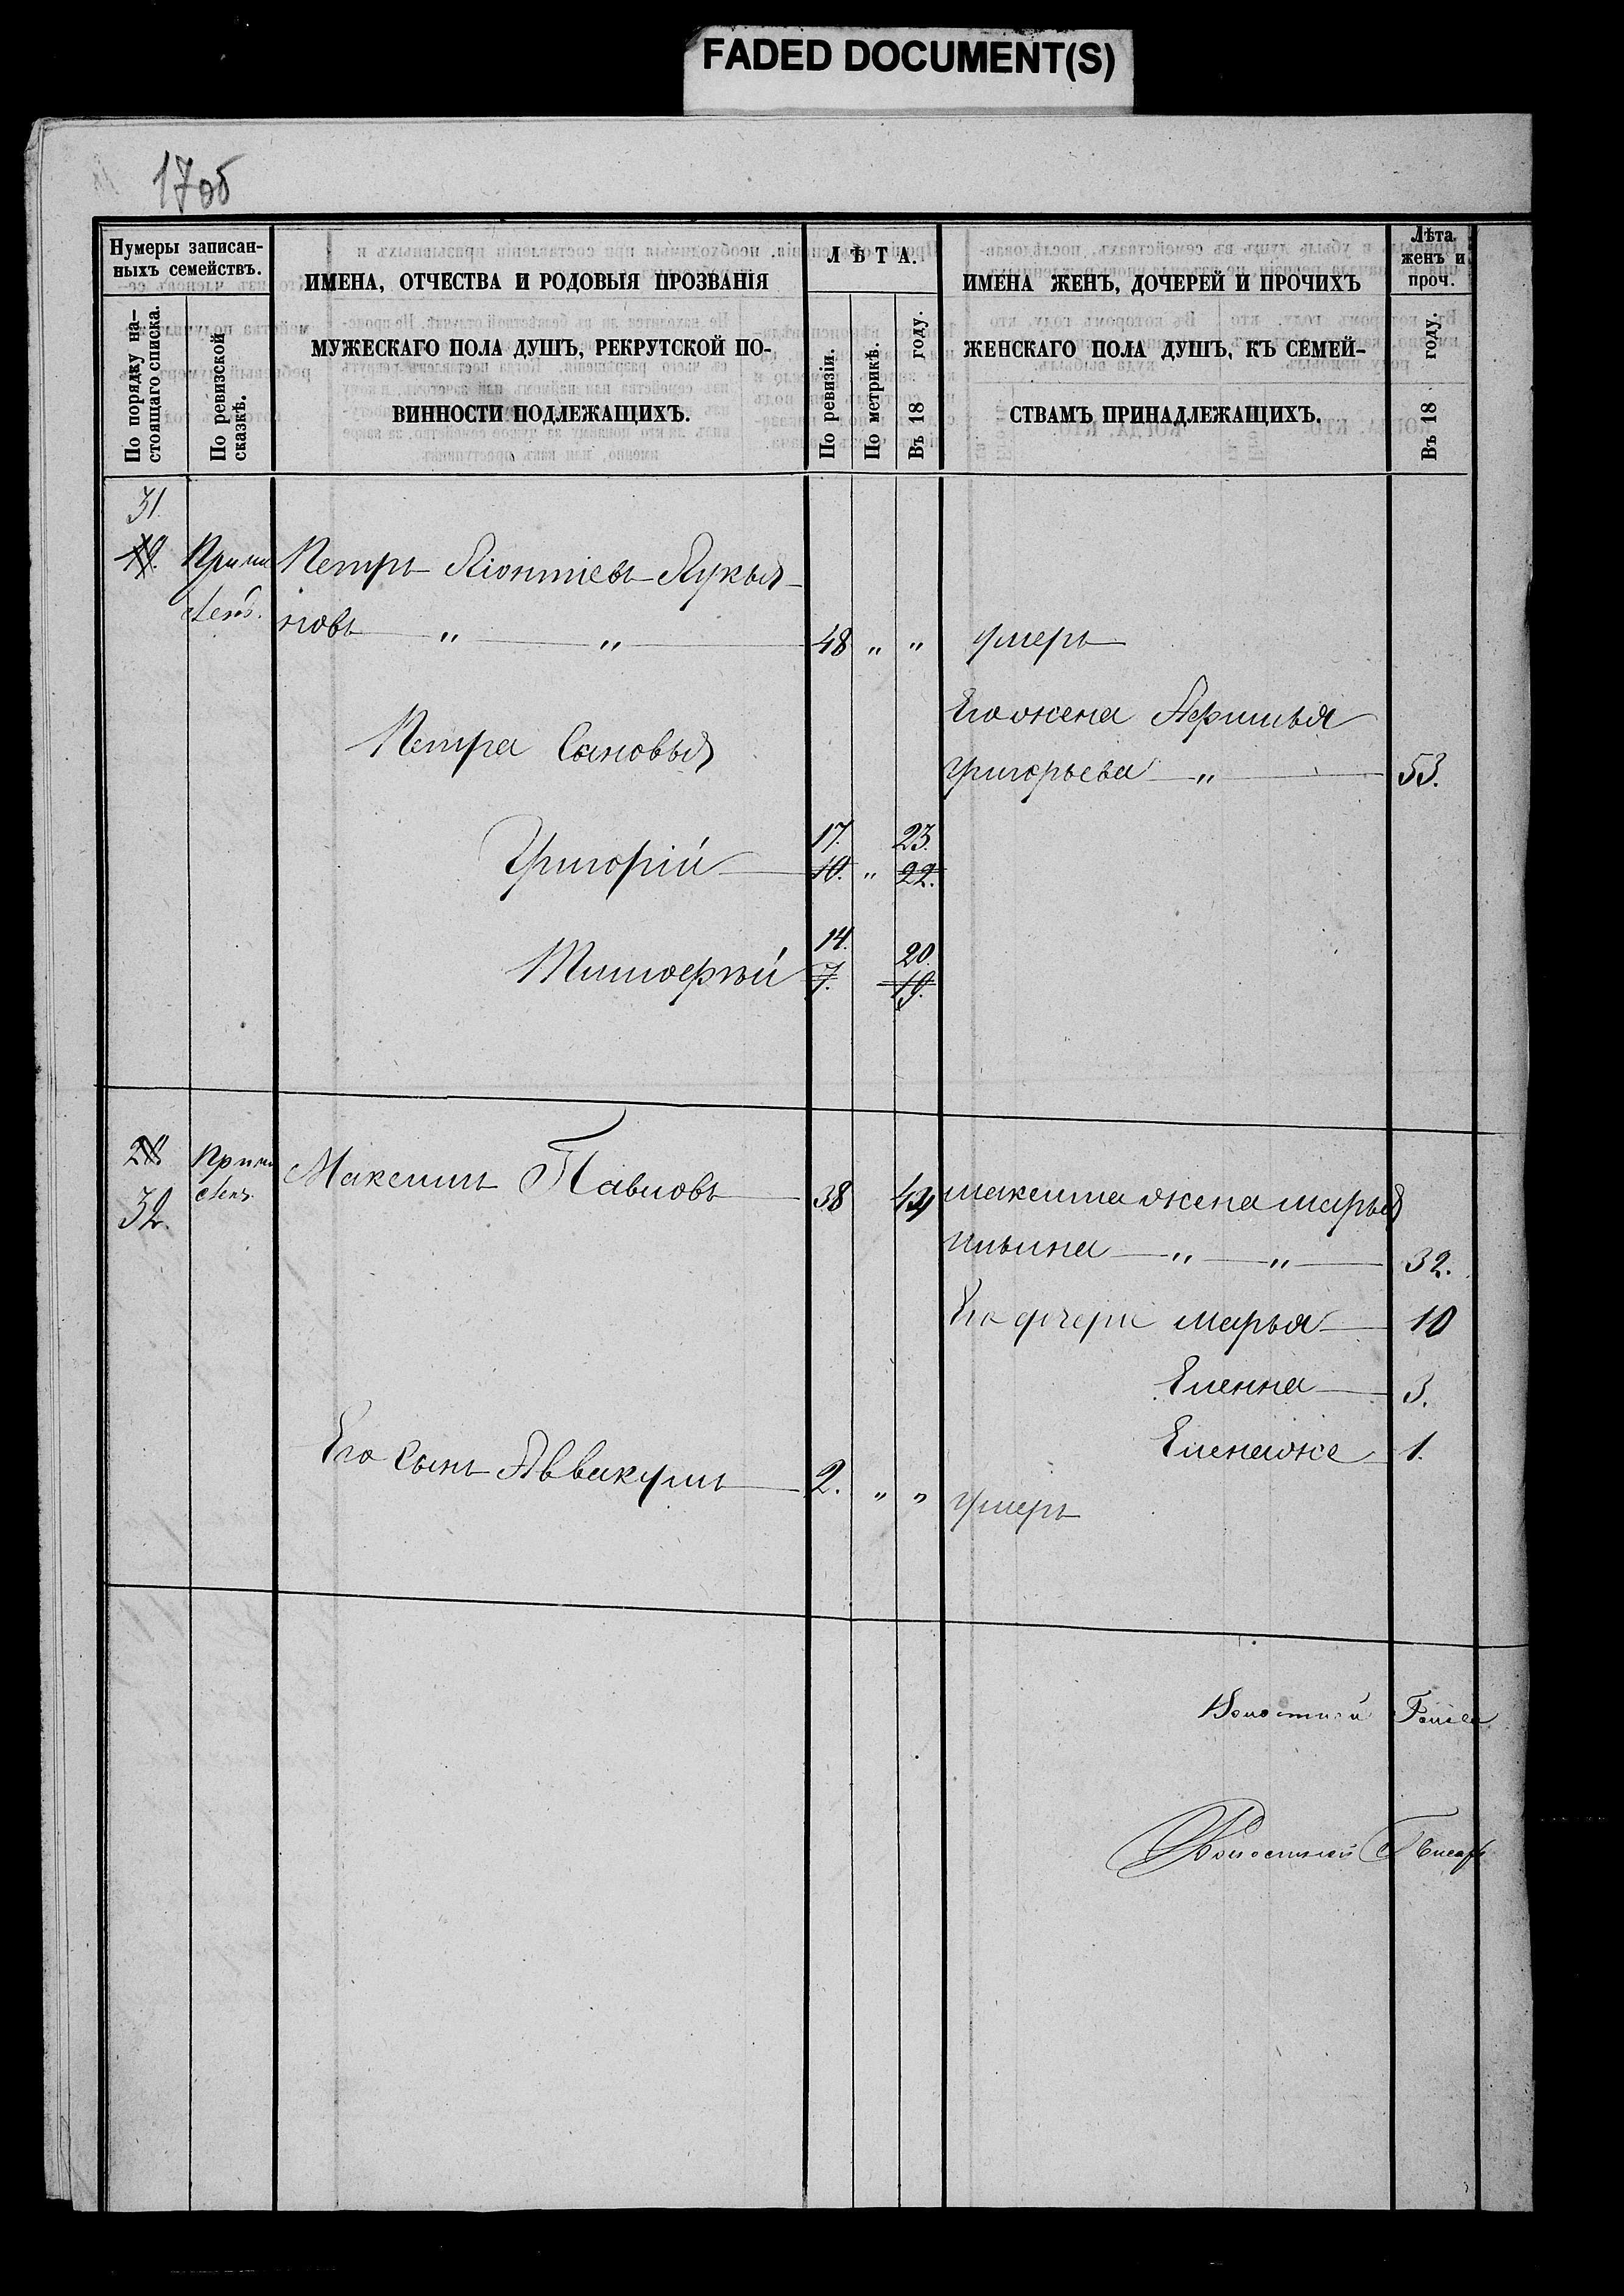 FADED DOCUMENT(S)
17об
Нумеры записан-
ныхъ семействъ.
По порядку на-
стоящаго списка.
По ревизской
сказкѣ.
ИМЕНА, ОТЧЕСТВА И РОДОВЫЯ ПРОЗВАНІЯ
МУЖЕСКАГО ПОЛА ДУШЪ, РЕКРУТСКОЙ ПО-
ВИННОСТИ ПОДЛЕЖАЩИХЪ.
ЛѢТА.
По ревизіи.
По метрикѣ.
Въ 18 году.
ИМЕНА ЖЕНЪ, ДОЧЕРЕЙ И ПРОЧИХЪ
ЖЕНСКАГО ПОЛА ДУШЪ, КЪ СЕМЕЙ-
СТВАМЪ ПРИНАДЛЕЖАЩИХЪ.
Лѣта
женъ и
проч.
Въ 18 году.
31.
19. Причи Петръ Ліонтіевъ Лукья-
сленъ. новъ „ „ 48 „ „ умеръ
Его жена
Петра Сановья
Григорьева „ 53.
17. 23.
Григорій 10. „ 22.
14. 20.
Тимоерей 7. 19.
20. Причи
Максимъ Павловъ 38 44 максима жена марья
сленъ.
32.
ильина „ „ 32.
Его дочери марья 10
Еленна 3.
Его Сынъ Аввакумъ 2. „ „ умеръ
1.
Волостной Голова
Волостной Писарь